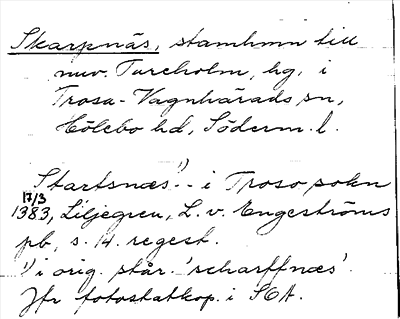 Skarpnäs, stamhmn till
nuv. Tureholm, hg, i
Trosa-Vagnhärads sn,
Hölebo hd, Söderm. l.
Startsnæs¹⁾ - i Troso sokn
17/3
1383, Liljegren, L. v. Engeströms
pb, s. 14. regest.
¹⁾ i orig. står 'scharffnæs'.
Jfr fotostatkop. i SOA.